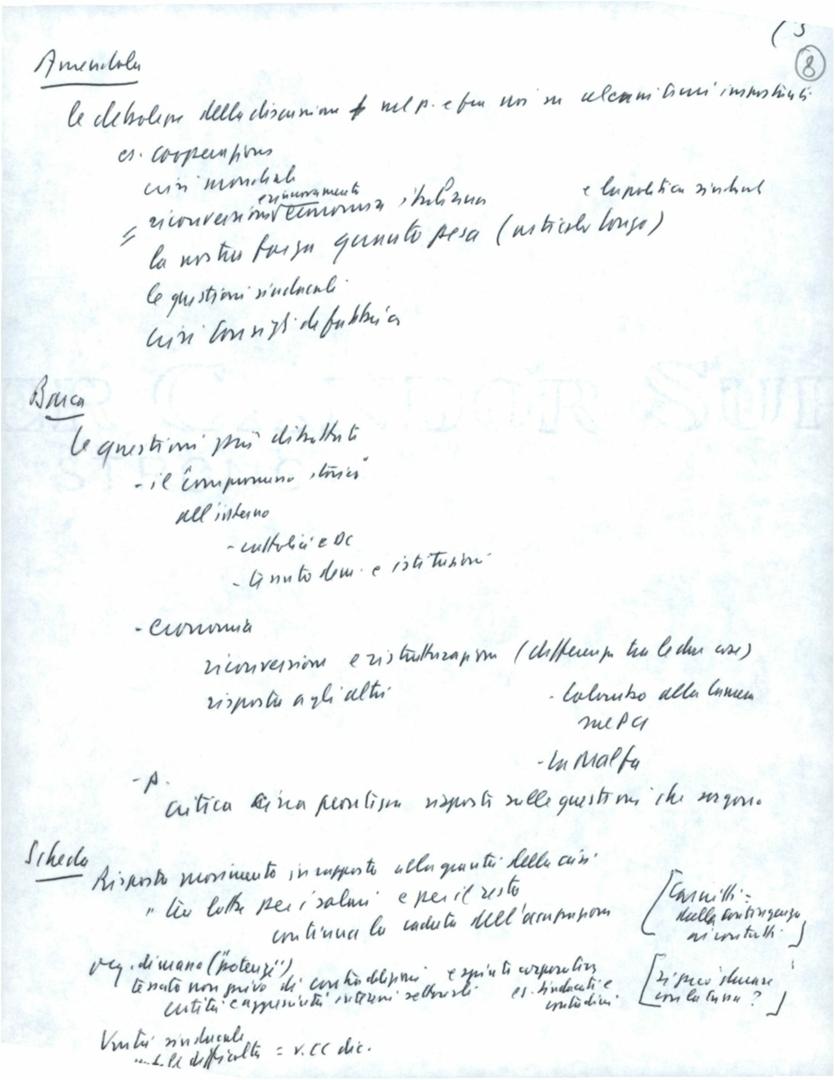 (5
8
Amendola
le debolezze della discussione nel p. e fra noi su alcuni temi importanti
es. cooperazione
crisi mondiale
esinuovamento
= riconversione economia italiana e la politica sindacale
la nostra forza quanto pesa (articolo Longo)
le questioni sindacali
crisi consigli di fabbrica
Bosca
le questioni più dibattute
- il "compromesso storico"
all'interno
- cattolici e DC
- tenuta dem. e istituzioni
- economia
riconversione e ristrutturazione (differenza tra le due cose)
risposta agli altri - Colombo alla Camera
sul PCI
- La Malfa
- p.
critica risposta sulle questioni che sorgono
Scheda
Risposta movimento in rapporto alla gravità della crisi
lotte per i salari e per il resto
continua la caduta dell'occupazione
[Carniti =
dalla contingenza
ai contratti]
("potenza")
tenuta non priva di contraddizioni e spinte corporative
interessi settoriali es. sindacati e
contadini
[si può
con la ?]
Unità sindacale
difficoltà = v. CC dic.